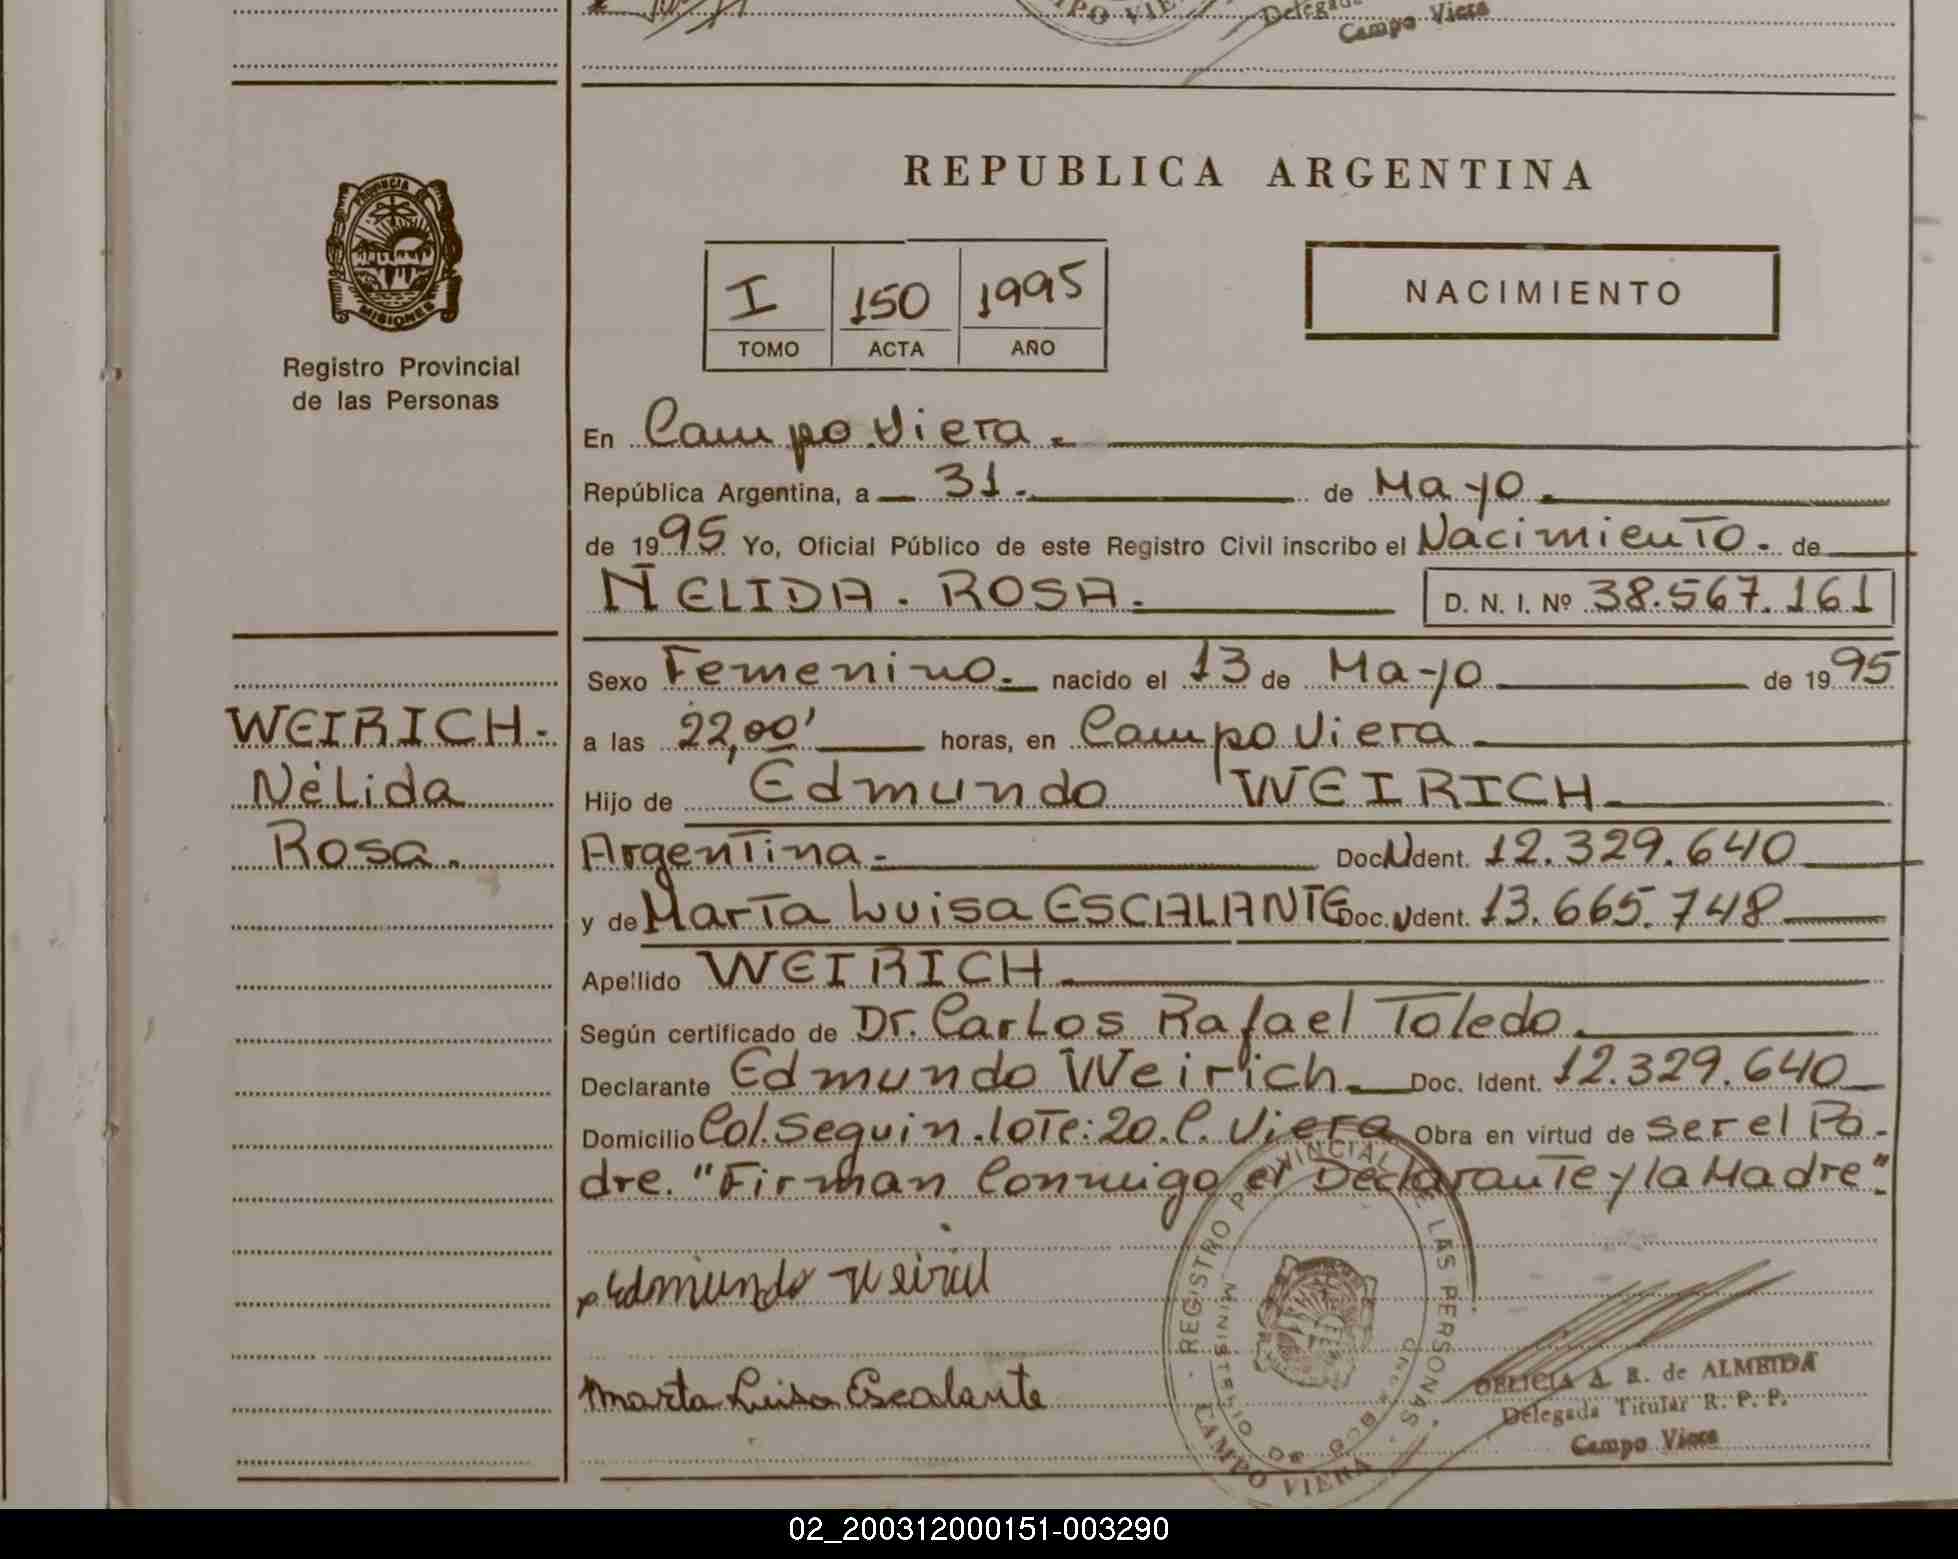 Delegada
Campo Viera
CAMPO VIERA
PROVINCIA
MISIONES
Registro Provincial
de las Personas
REPUBLICA ARGENTINA
I 150 1995
TOMO ACTA AÑO
NACIMIENTO
En Campo Viera.
República Argentina, a 31. de Mayo.
de 1995 Yo, Oficial Público de este Registro Civil inscribo el Nacimiento. de
NELIDA. ROSA. D. N. I. Nº 38.567.161
Sexo Femenino. nacido el 13 de Mayo de 1995
WEIRICH.
Nélida
Rosa.
a las 22,00' horas, en Campo Viera
Hijo de Edmundo WEIRICH
Argentina. Doc. Ndent. 12.329.640
y de Marta Luisa ESCALANTE Doc. Ndent. 13.665.748
Apellido WEIRICH
Según certificado de Dr. Carlos Rafael Toledo.
Declarante Edmundo Weirich. Doc. Ident. 12.329.640
Domicilio Col. Seguin. lote: 20. C. Viera Obra en virtud de ser el Pa-
dre. "Firman Conmigo el Declarante y la Madre".
Edmundo Weirich
Marta Luisa Escalante
REGISTRO PROVINCIAL DE LAS PERSONAS
MINISTERIO DE GOB.
CAMPO VIERA
DELICIA A. R. de ALMEIDA
Delegada Titular R. P. P.
Campo Viera
02_200312000151-003290